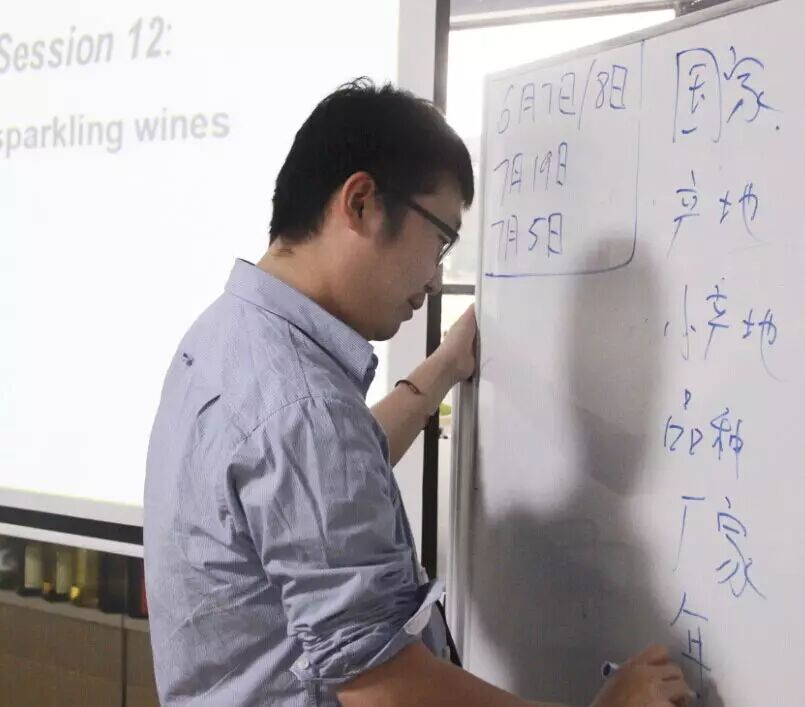 Session 12:
sparkling wines
6月7日/8日
7月19日
7月5日
国家
产地
小产地
品种
厂家
年